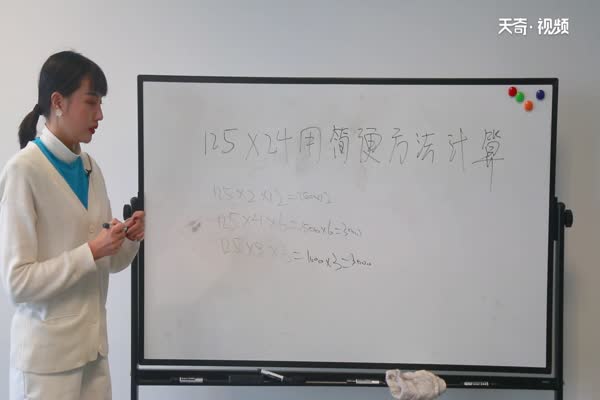 天奇·视频
125×24用简便方法计算
125×2×12=
125×4×6= ×6=
125×8×3=1000×3=3000